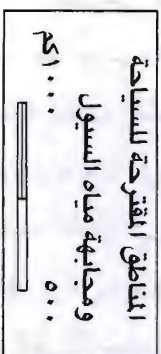 المناطق المقترحة للسياحة
ومجابهة مياه السيول
٥٠٠ ١٠٠٠كم